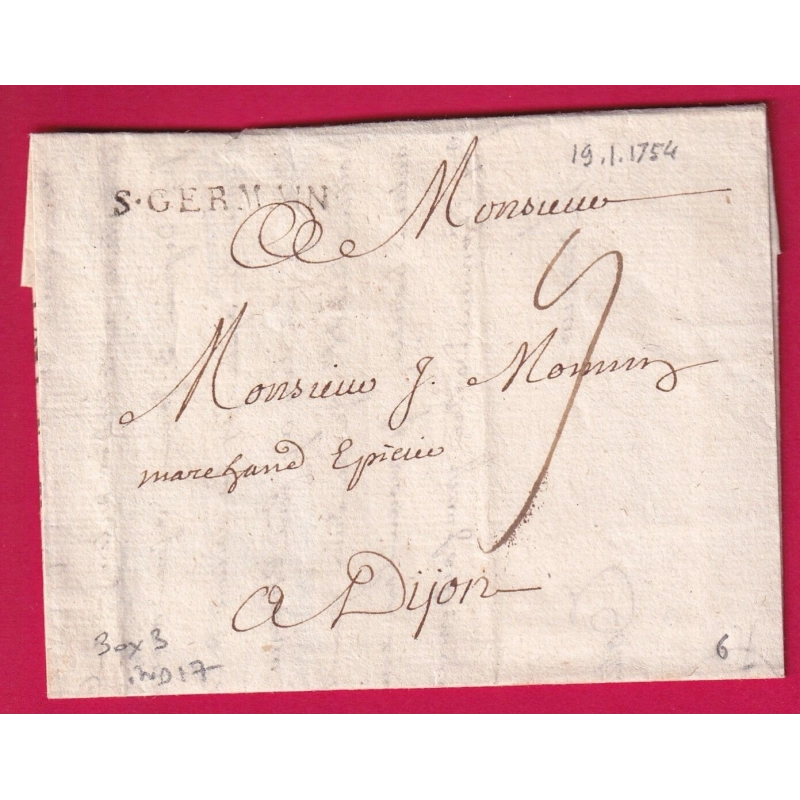 19.1.1754
S·GERMAIN
A Monsieur
Monsieur J.
marchand Epicier
9
a Dijon
30x3
IND 17
6